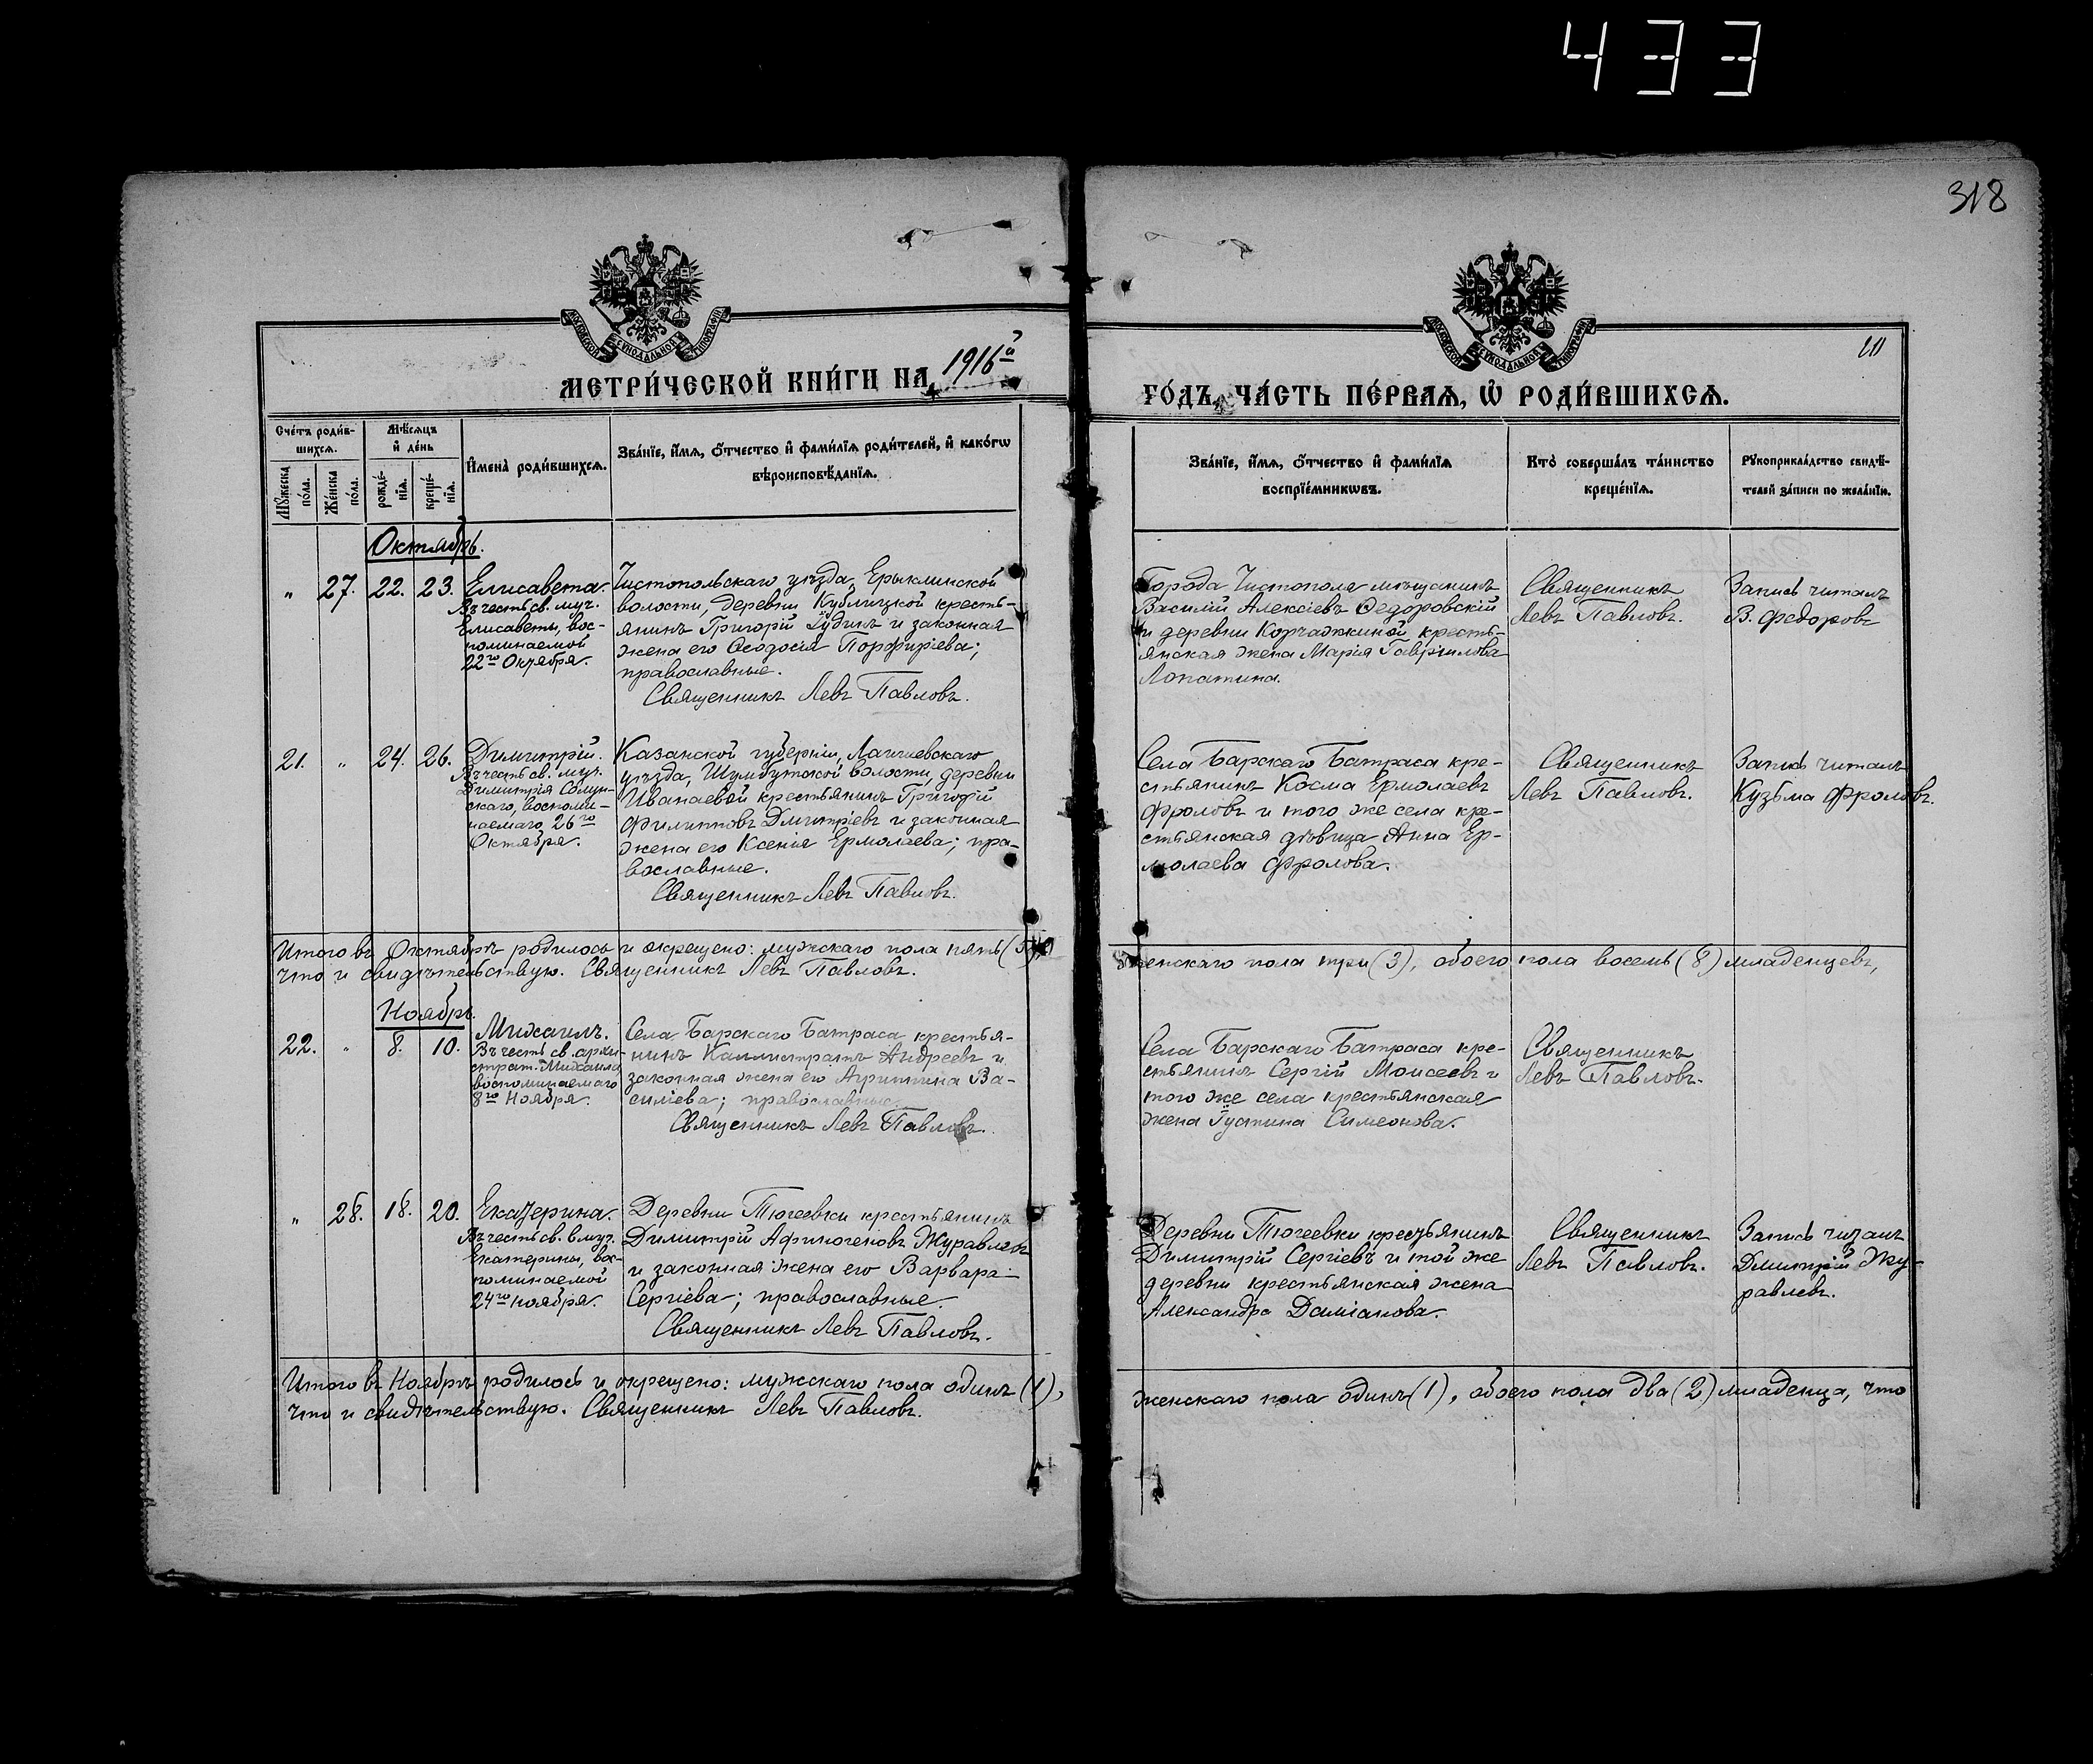 433
318
МОСКОВСКОЙ СѴНОДАЛЬНОЙ ТИПОГРАФІИ
МОСКОВСКОЙ СѴНОДАЛЬНОЙ ТИПОГРАФІИ
МЕТРИ́ЧЕСКОЙ КНИ́ГИ НА 1916й
ГО́ДЪ, ЧА́СТЬ ПЕ́РВАѦ, Ѡ҆ РОДИ́ВШИХСѦ.
Сче́тъ роди́в-
шихсѧ.
Мꙋ́жеска по́ла.
Же́нска по́ла.
Мѣ́сѧцъ
и҆ де́нь
рожде́-
нїѧ.
креще́-
нїѧ.
И҆мена̀ роди́вшихсѧ.
Зва́нїе, и҆́мѧ, ѻ҆́тчество и҆ фами́лїѧ роди́телей, и҆ како́гѡ
вѣроисповѣ́данїѧ.
Зва́нїе, и҆́мѧ, ѻ҆́тчество и҆ фами́лїѧ
воспрїе́мникѡвъ.
Кто̀ соверша́лъ та́инство
креще́нїѧ.
Рꙋкоприкла́дство свидѣ́-
телей за́писи по жела́нїю.
Октябрь.
" 27. 22. 23.
Елисавета.
Въ честь св. муч.
Елисаветы, вос-
поминаемой
22го Октября.
Чистопольскаго уѣзда, Ерыклинской
волости, деревни Кублицкой кресть-
янинъ Григорій Юдинъ и законная
жена его Ѳеодосія Порфиріева;
православные.
Священникъ Левъ Павловъ.
Города Чистополя мѣщанинъ
Василій Алексіевъ Ѳедоровскій
и деревни Корчажкиной кресть-
янская жена Марія Гавріилова
Лопатина.
Священникъ
Левъ Павловъ.
Запись читалъ
В. Федоровъ
21. " 24. 26.
Димитрій.
Въ честь св. муч.
Димитрія Солун-
скаго, воспоми-
наемаго 26го
Октября.
Казанской губерніи, Лаишевскаго
уѣзда, Шумбутской волости, деревни
Иванаевой крестьянинъ Григорій
Филипповъ Дмитріевъ и законная
жена его Ксенія Ермолаева; пра-
вославные.
Священникъ Левъ Павловъ.
Села Барскаго Батраса кре-
стьянинъ Косма Ермолаевъ
Фроловъ и того же села кре-
стьянская дѣвица Анна Ер-
молаева Фролова.
Священникъ
Левъ Павловъ.
Запись читалъ
Кузьма Фроловъ.
Итого въ Октябрѣ родилось и окрещено: мужскаго пола пять (5),
женскаго пола три (3), обоего пола восемь (8) младенцевъ,
что и свидѣтельствую. Священникъ Левъ Павловъ.
Ноябрь.
22. " 8. 10.
Михаилъ.
Въ честь св. архи-
страт. Михаила
воспоминаемаго
8го Ноября.
Села Барскаго Батраса крестья-
нинъ Каллистратъ Андреевъ и
законная жена его Агриппина Ва-
силіева; православные.
Священникъ Левъ Павловъ.
Села Барскаго Батраса кре-
стьянинъ Сергій Моисеевъ и
того же села крестьянская
жена Іустина Симеонова.
Священникъ
Левъ Павловъ.
" 28. 18. 20.
Екатерина.
Въ честь св. в.муч.
Екатерины, вос-
поминаемой
24го ноября.
Деревни Тюгеевки крестьянинъ
Димитрій Афиногеновъ Журавлевъ
и законная жена его Варвара
Сергіева; православные.
Священникъ Левъ Павловъ.
Деревни Тюгеевки крестьянинъ
Димитрій Сергіевъ и той же
деревни крестьянская жена
Александра Даміанова.
Священникъ
Левъ Павловъ.
Запись читалъ
Дмитрій Жу-
равлевъ.
Итого въ Ноябрѣ родилось и окрещено: мужскаго пола одинъ (1),
женскаго пола одинъ (1), обоего пола два (2) младенца, что
что и свидѣтельствую. Священникъ Левъ Павловъ.